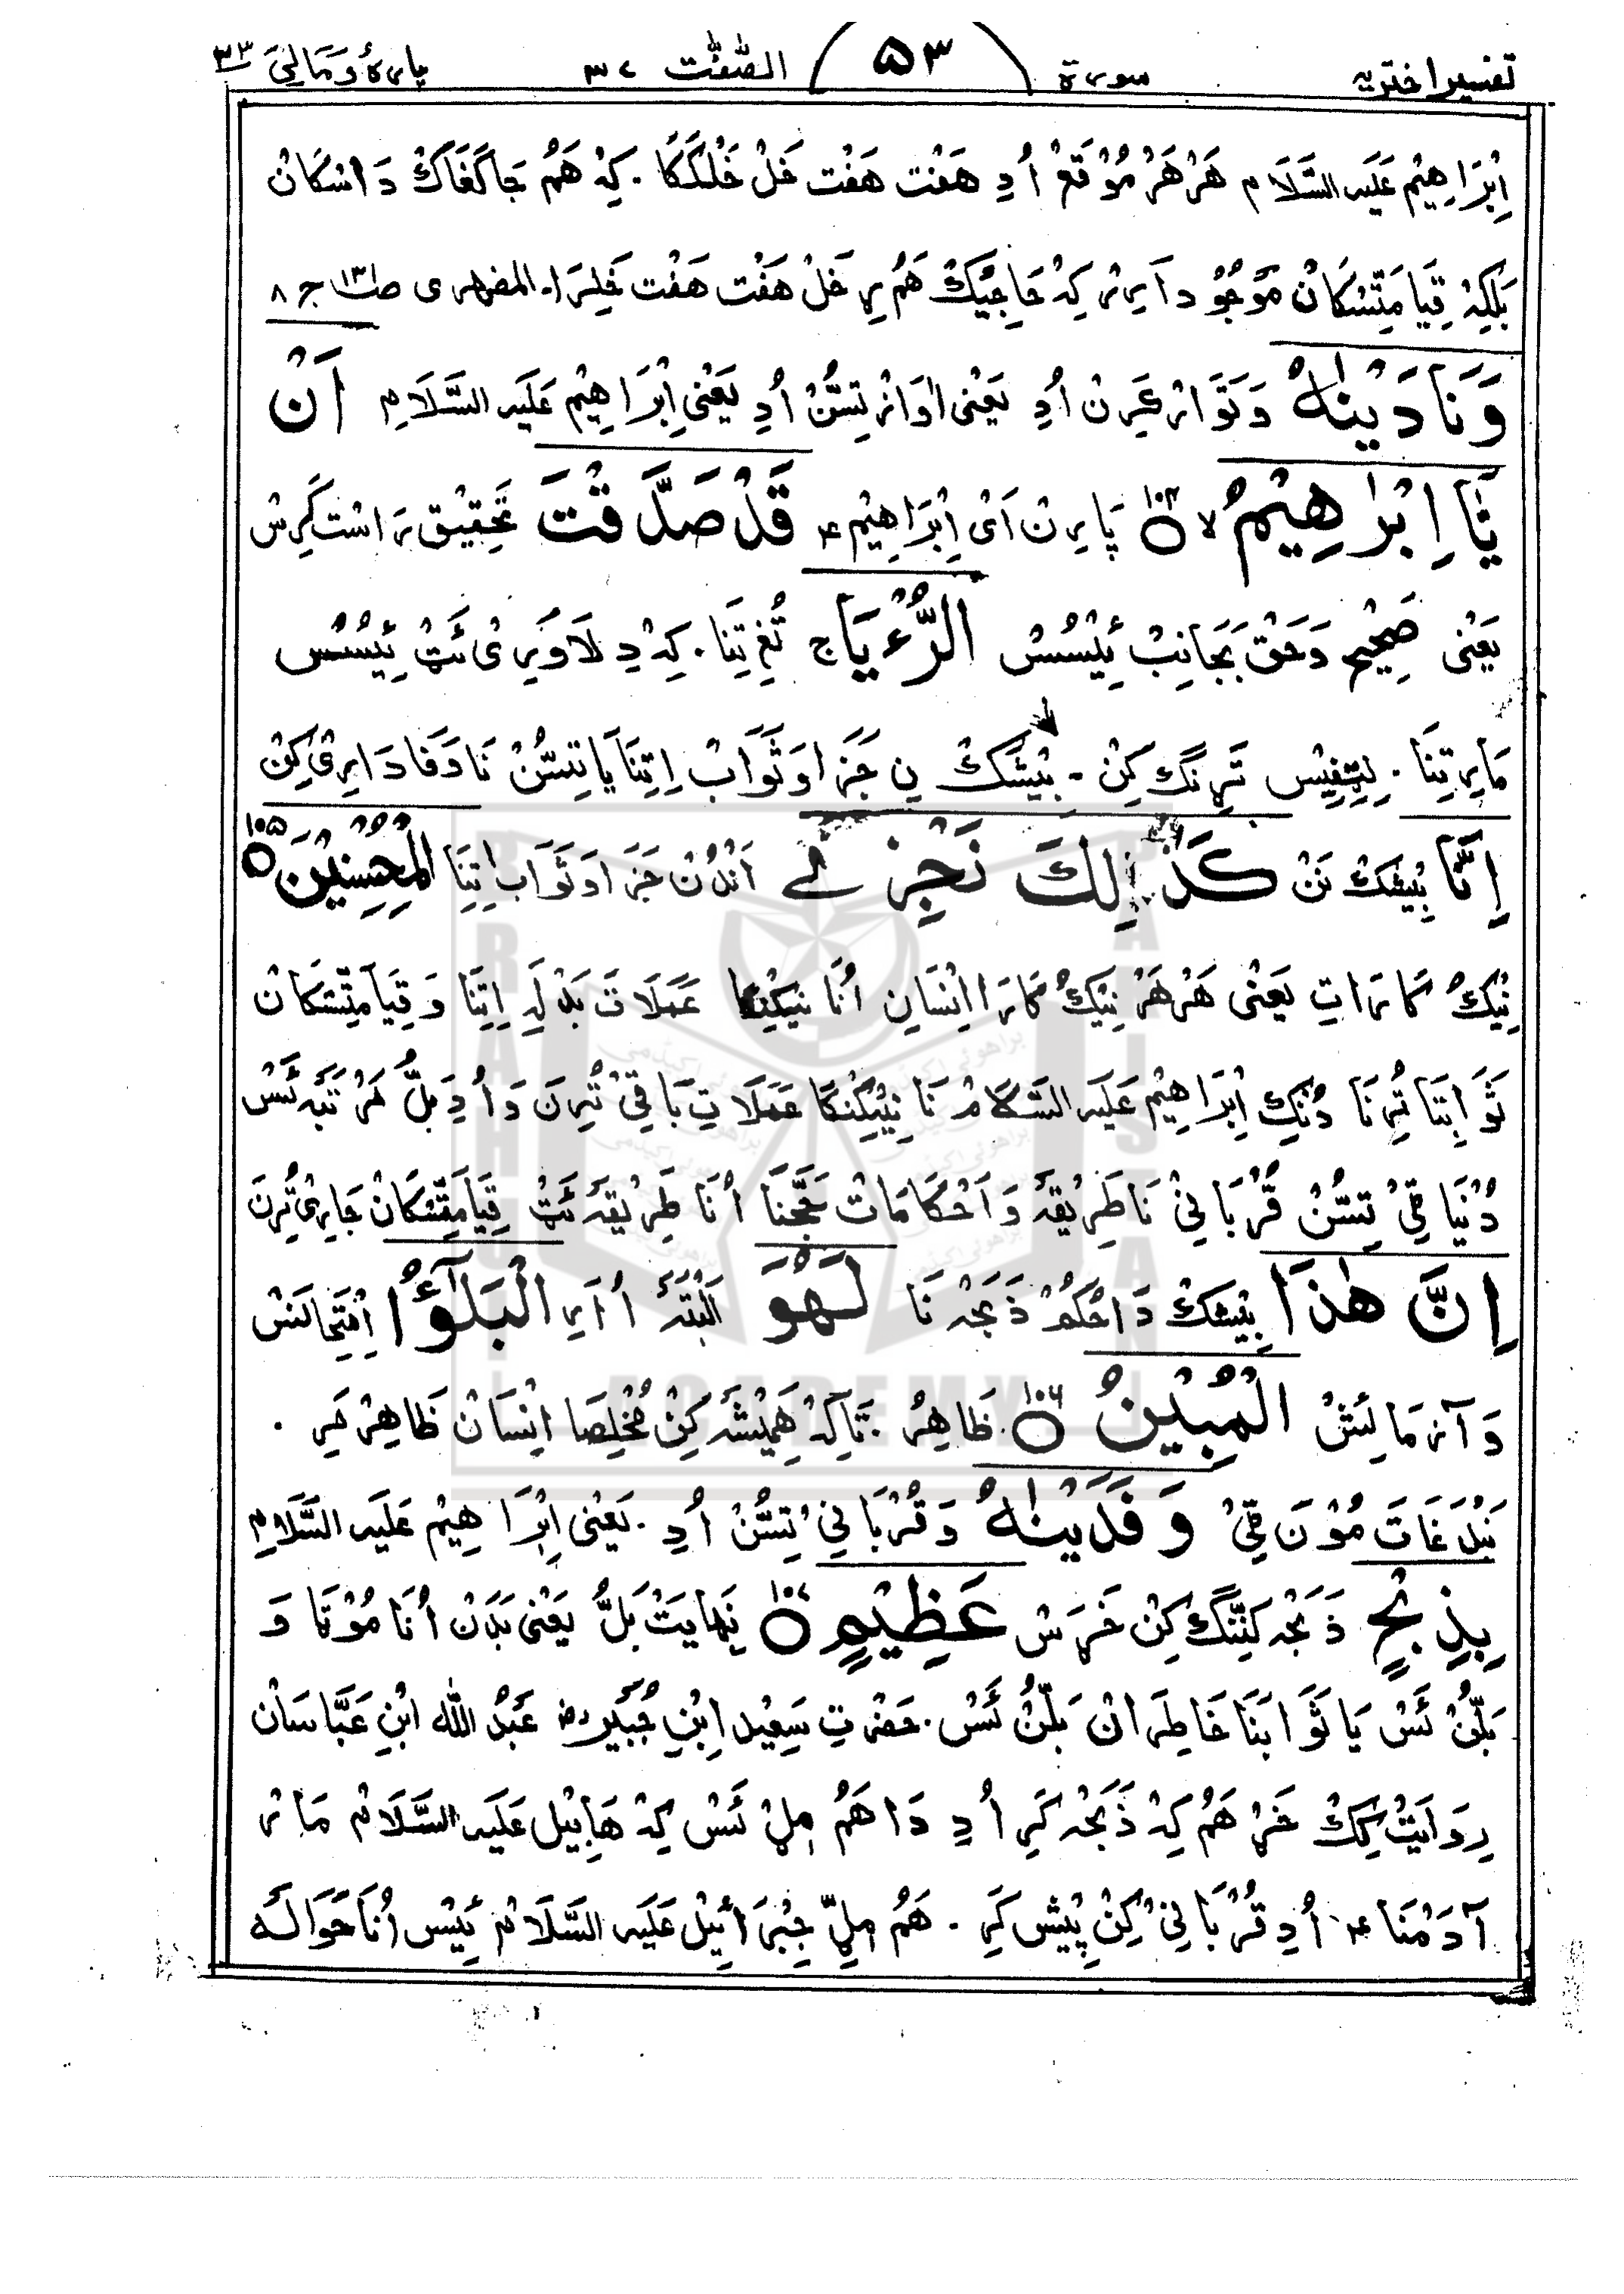 تفسیر اختریه سورة ۵۳ الصّٰفّٰت ۳۷ پاره وَمَالِیَ ۲۳
اِبْرَاهِیْم عَلَیه السَّلَام هَرْ هَرْ مُوْقَعْ اُدِ هَفْت هَفْت خَلْ خَلْکَکَا. کِهْ هَمُ جَاگَغَاکْ دَاسْکَانْ
بَلْکِهْ قِیَامَتِّسْکَانْ مَوْجُوْد اَرِیْر کِهْ حَاجِیْکْ هَمُ پِر خَلْ هَفْت هَفْت خَلِرَا. المظهری صـ۱۳۱ جـ ۸
وَنَادَیْنٰهُ وَتَوَار کَرِنْ اُدِ یَعْنی اَوَاز تِسُّنْ اُدِ یَعْنی اِبْرَاهِیْم عَلَیه السَّلَامِ اَنْ
یّٰۤاِبْرٰهِیْمُ ۙ ۱۰۴ پَارِنْ اَیْ اِبْرَاهِیْم ؑ قَدْ صَدَّقْتَ تَحْقِیْق رَاسْت کَرِسْ
یَعْنی صَحِیْح وَحَقْ بَجَانِبْ ئِیْسُسْ الرُّءْیَا ج تُغِ تِنَا. کِهْ دِلَاوَرِیْ ئَتْ ئِیْسُسْ
مَارِ تِنَا. لِتِّفِیْس تَرِنْگ کِنْ - بِیْشَکْ نِ جَزَا وَثَوَابْ اِتِنَا یَا تِسُّنْ نَا وَفَادَارِیْ کِنْ
اِنَّا بِیْشَکْ نَنْ کَذٰلِکَ نَجْزِی اَنْدُنْ جَزَا وَثَوَاب اِتِنَا الْمُحْسِنِیْنَ ۱۰۵
نِیْکْ کَارَاتِ یَعْنی هَرْ هَرْ نِیْکْ کَارَا اِنْسَانِ اُنَا نیکِنْگَا عَمَلَاتَ بَدْلَه اِتِنَا وَ قِیَامَتِّسْکَانْ
ثَوَابِتَا تُرِنَا دُنْکِ اِبْرَاهِیْم عَلَیه السَّلَامْ نَا نِیْکِنْگَا عَمَلَاتِ بَاقِیْ تُرِنَ وَ اُدِ بَلُّ مَرْتَبَه ئَسْ
دُنْیَا ٹِیْ تِسُّنْ قُرْبَانِیْ نَا طَرِیْقَهْ وَ اَحْکَامَاتْ حَجَّنَا اُنَا طَرِیْقَه ئَتْ قِیَامَتِّسْکَانْ جَارِیْ تُرِنَ
اِنَّ هٰذَا بِیْشَکْ دَا حُکُمْ ذَبْحِه نَا لَهُوَ اَلْبَتَّهْ اُ اَرِ الْبَلٰٓؤُا اِمْتِحَانَسْ
وَ آزْمَائِشْ الْمُبِیْنُ ۱۰۶ ظَاهِرُ. تَاکِهْ هَمِیْشَه کِنْ مُخْلِصَا اِنْسَانْ ظَاهِرْ مَرِ.
بَنْدَغَاتَ مُوْنَ ٹِیْ وَفَدَیْنٰهُ وَقُرْبَانِیْ تِسُّنْ اُدِ. یَعْنی اِبْرَاهِیْم عَلَیه السَّلَامِ
بِذِبْحٍ ذَبْحِه کِنَّنْگ کِنْ خَرَسْ عَظِیْمٍ ۱۰۷ نِهَایَتْ بَلُّ یَعْنی بَدَنْ اُنَا مُوْتَا وَ
بَلُّنْ ئَسْ یَا ثَوَابَنَا خَاطِرَانْ بَلُّنْ ئَسْ. حضرتِ سَعِیْد اِبْنِ جُبَیْر رض عَبْدُ اللّٰه ابْنِ عَبَّاسَانْ
رِوَایَتْ کِکْ خَرْ هَمُ کِهْ ذَبْحِه کَرِ اُدِ دَا هَمُ مِلْ ئَسْ کِهْ هَابِیْل عَلَیه السَّلَامْ مَارْ
آدَمْنَا ؑ اُدِ قُرْبَانِیْ کِنْ پِیْش کَرِ. هَمُ مِلِّ جِبْرَائِیْل عَلَیه السَّلَامْ ئِیْس اُنَا حَوَالَه